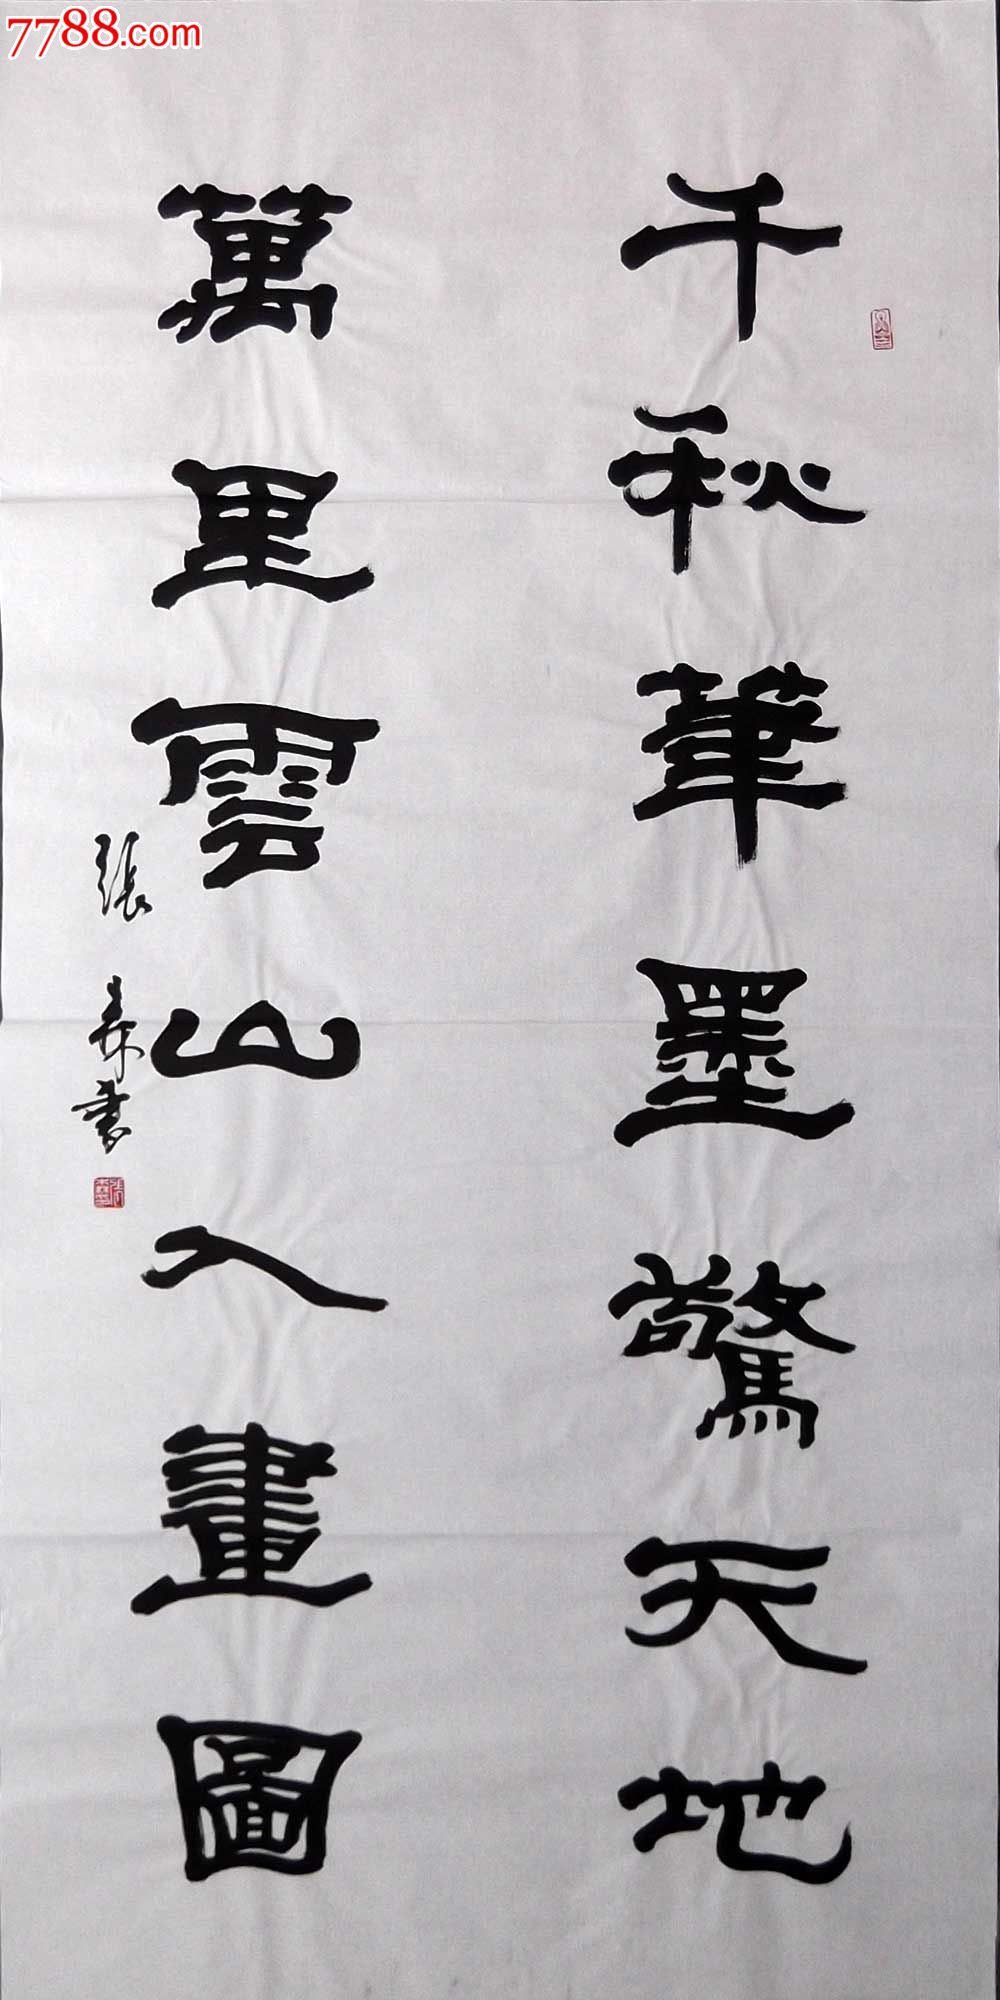 7788.com
千秋筆墨驚天地
萬里雲山入畫圖
張
書